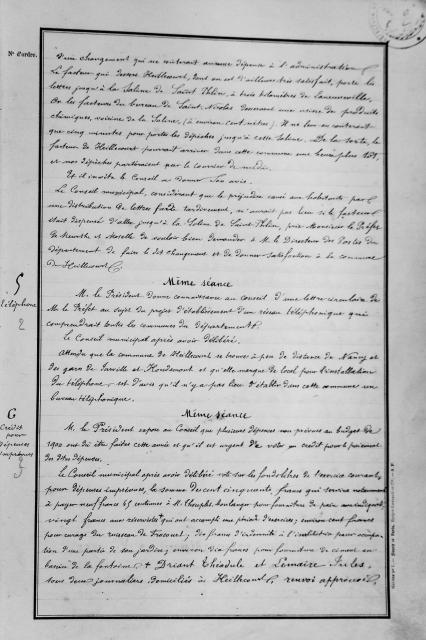 N° d'ordre.
d'un changement qui ne coûterait aucune dépense à l'administration.
Le facteur qui dessert Heillecourt, dont on est d'ailleurs très satisfait, porte les
lettres jusqu'à la Saline de Saint Phlin, à trois kilomètres de Laneuveville.
Or les facteurs du bureau de Saint-Nicolas desservent une usine de produits
chimiques, voisine de la Saline, (à environ cent mètres). Il ne leur en coûterait
que cinq minutes pour porter les dépêches jusqu'à cette Saline. De la sorte, le
facteur de Heillecourt pourrait arriver dans cette commune une heure plus tôt
et nos dépêches partiraient par le courrier de midi.
Et il invite le Conseil à donner son avis.
Le Conseil municipal, considérant que le préjudice causé aux habitants par
une distribution de lettres tardivement, n'aurait pas lieu si le facteur
était dispensé d'aller jusqu'à la Saline de Saint-Phlin, prie Monsieur le Préfet
de Meurthe et Moselle de vouloir bien demander à M. le Directeur des Postes du
Département de faire le dit changement et de donner satisfaction à la commune
de Heillecourt.
5
téléphone
2
Même séance
M. le Président donne connaissance au conseil d'une lettre circulaire de
M. le Préfet au sujet du projet d'établissement d'un réseau téléphonique qui
comprendrait toutes les communes du département.
Le Conseil municipal après avoir délibéré.
Attendu que la commune de Heillecourt se trouve à peu de distance de Nancy et
des gares de Jarville et Houdemont et qu'elle manque de local pour l'installation
du téléphone, est d'avis qu'il n'y a pas lieu d'établir dans cette commune un
bureau téléphonique.
6
Crédit
pour
dépenses
imprévues
3
Même séance
M. le Président expose au Conseil que plusieurs dépenses non prévues au budget de
1900 ont dû être faites cette année et qu'il est urgent de voter un crédit pour le paiement
des dites dépenses.
Le Conseil municipal après avoir délibéré vote sur les fonds libres de l'exercice courant,
pour dépenses imprévues, la somme de cent cinquante francs qui servira notamment
à payer neuf francs 65 centimes à M. boulanger pour fourniture de pain aux indigents,
vingt francs aux réservistes qui ont accompli une période d'exercices; environ cent francs
pour curage du ruisseau de ; dix francs d'indemnité à l'institutrice pour occupation
d'une partie de son jardin; environ dix francs pour fourniture de ciment au
bassin de la fontaine. + Driant Théodule et Lemaire Jules,
tous deux journaliers domiciliés à Heillecourt, renvoi approuvé.